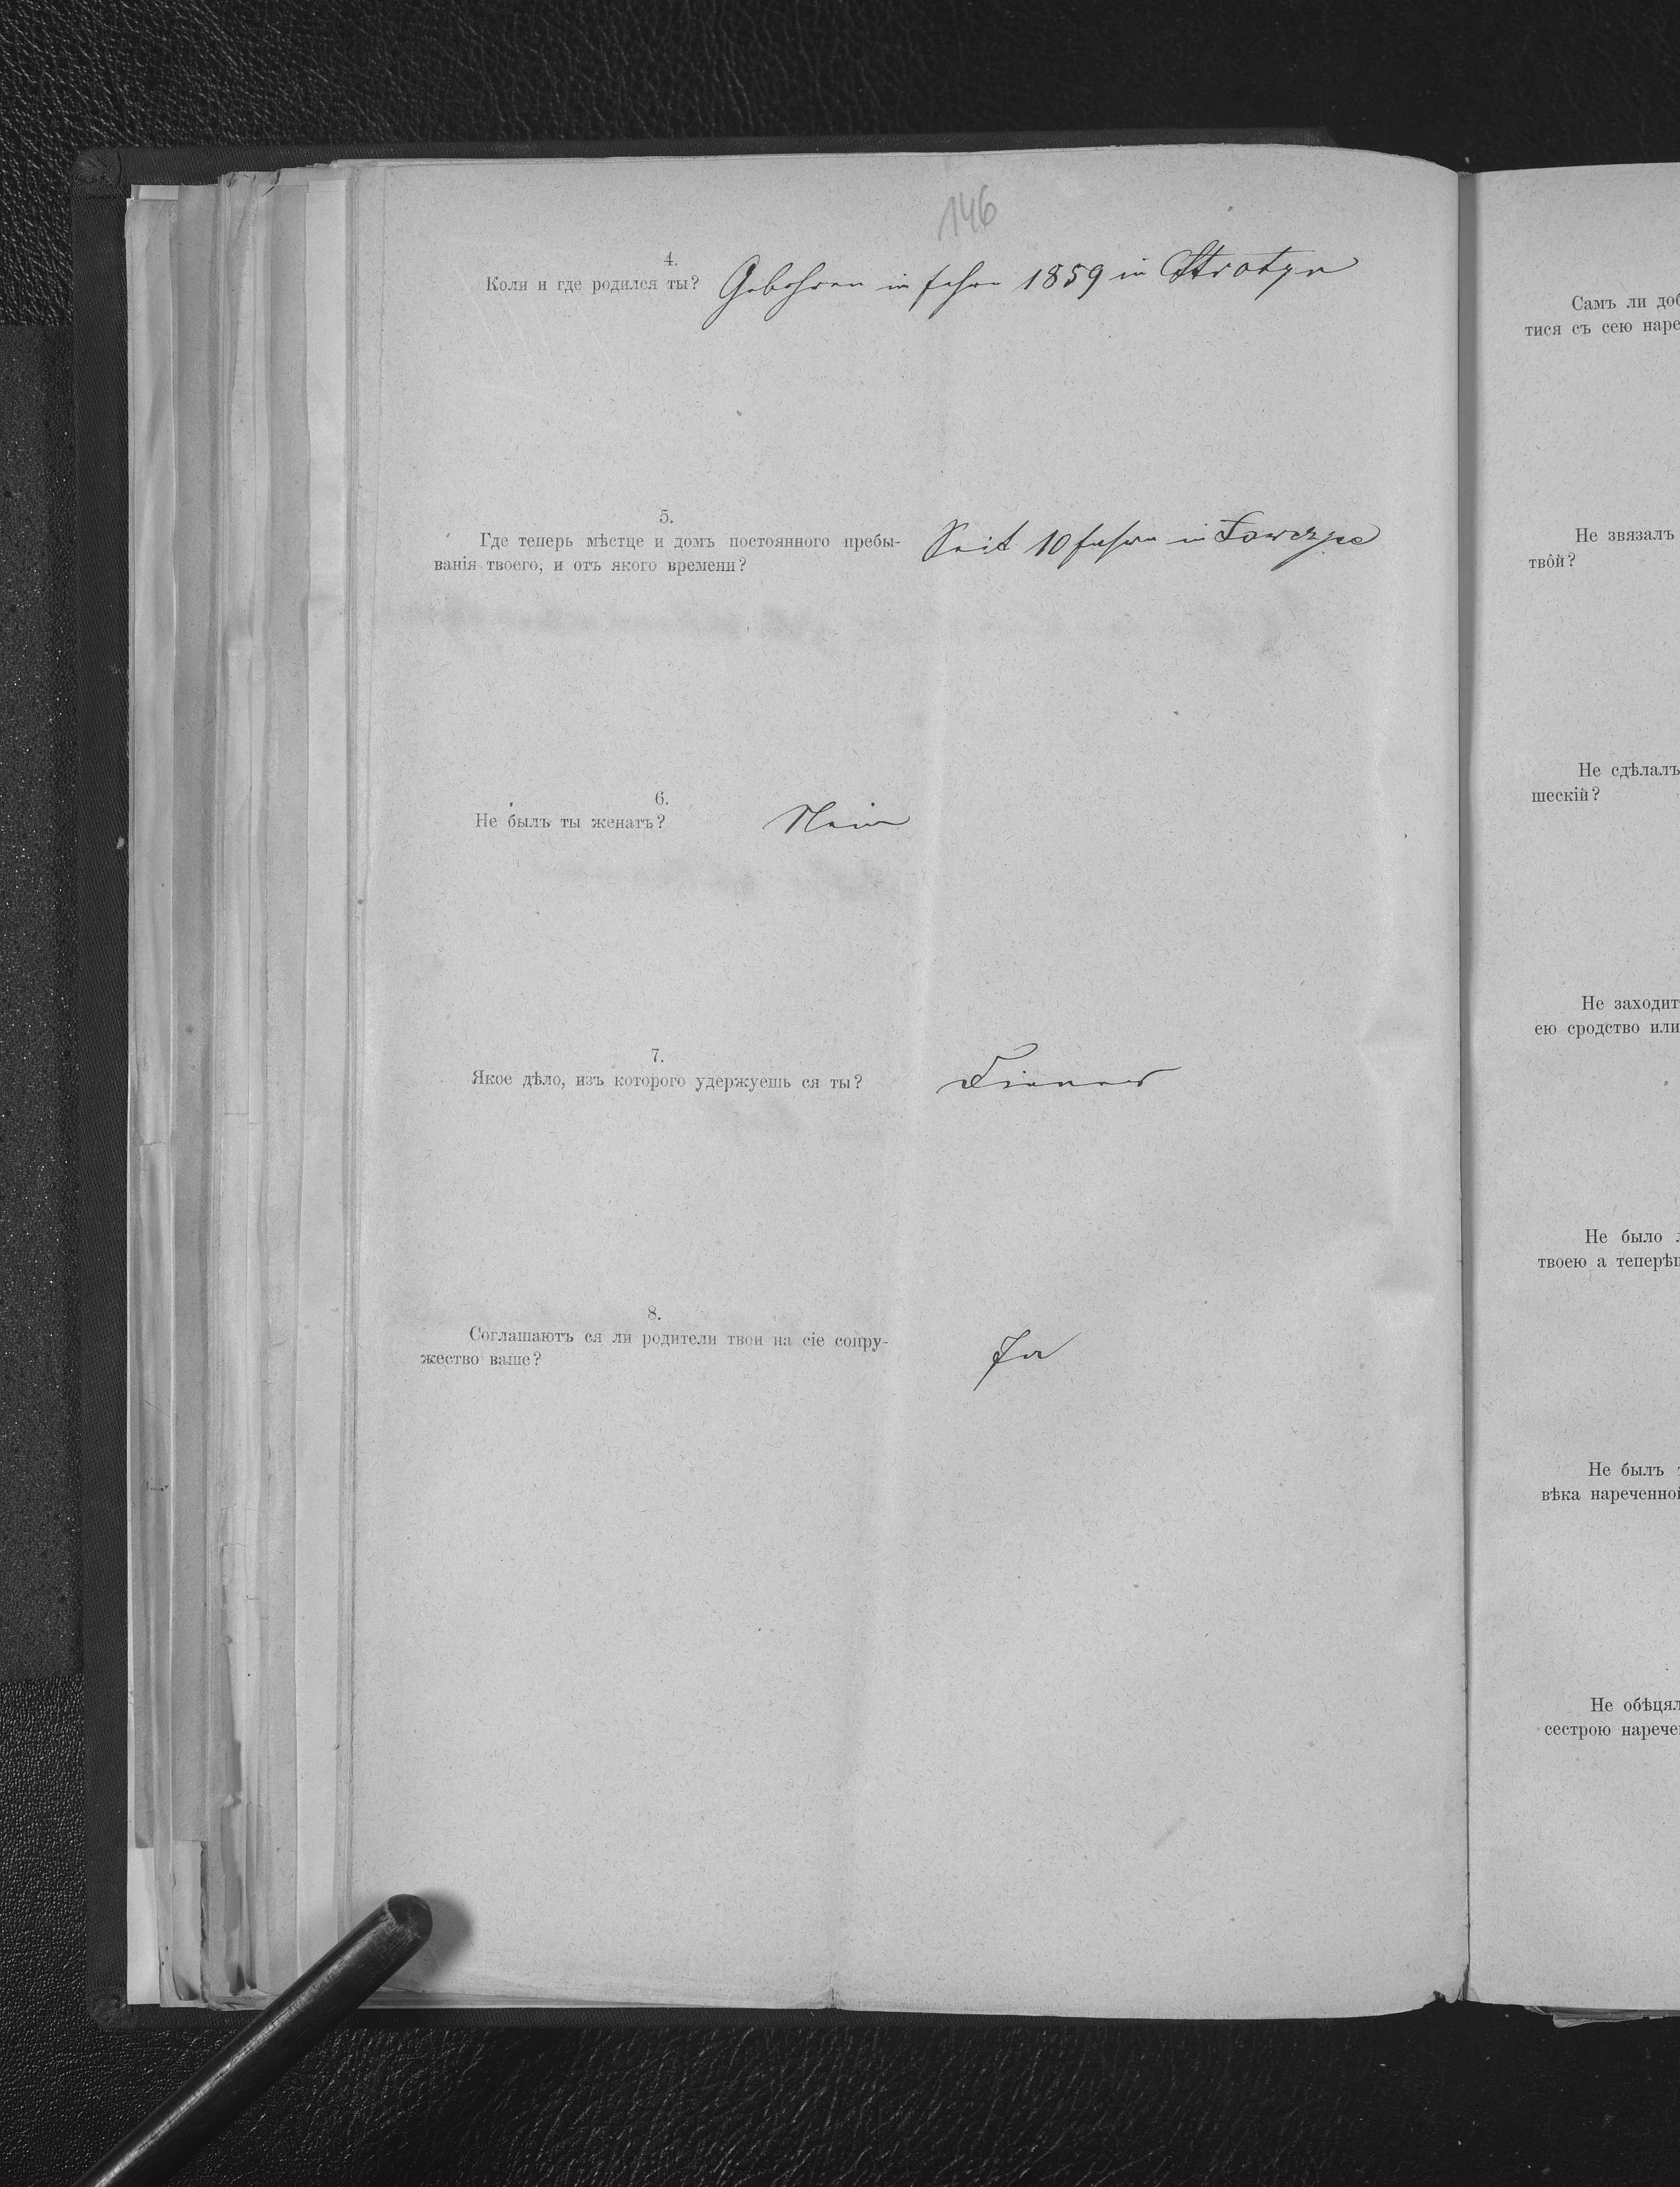 146
4.
Коли и где родился ты? Gebohren in Jahre 1859 in Stratyn
5.
Где теперь мѣстце и домъ постоянного пребы- Seit 10 Jahren in
ванія твоего, и отъ якого времени?
6.
Не былъ ты женатъ? Nein
7.
Якое дѣло, изъ которого удержуешь ся ты? Diener
8.
Соглашаютъ ся ли родители твои на сіе сопру- Ja
жество ваше?
Самъ ли доб
тися съ сею наре
Не звязалъ
твôй?
Не сдѣлалъ
шескій?
Не заходит
ею сродство или
Не было
твоею а теперѣ
Не былъ
вѣка нареченной
Не обѣцял
сестрою наречен